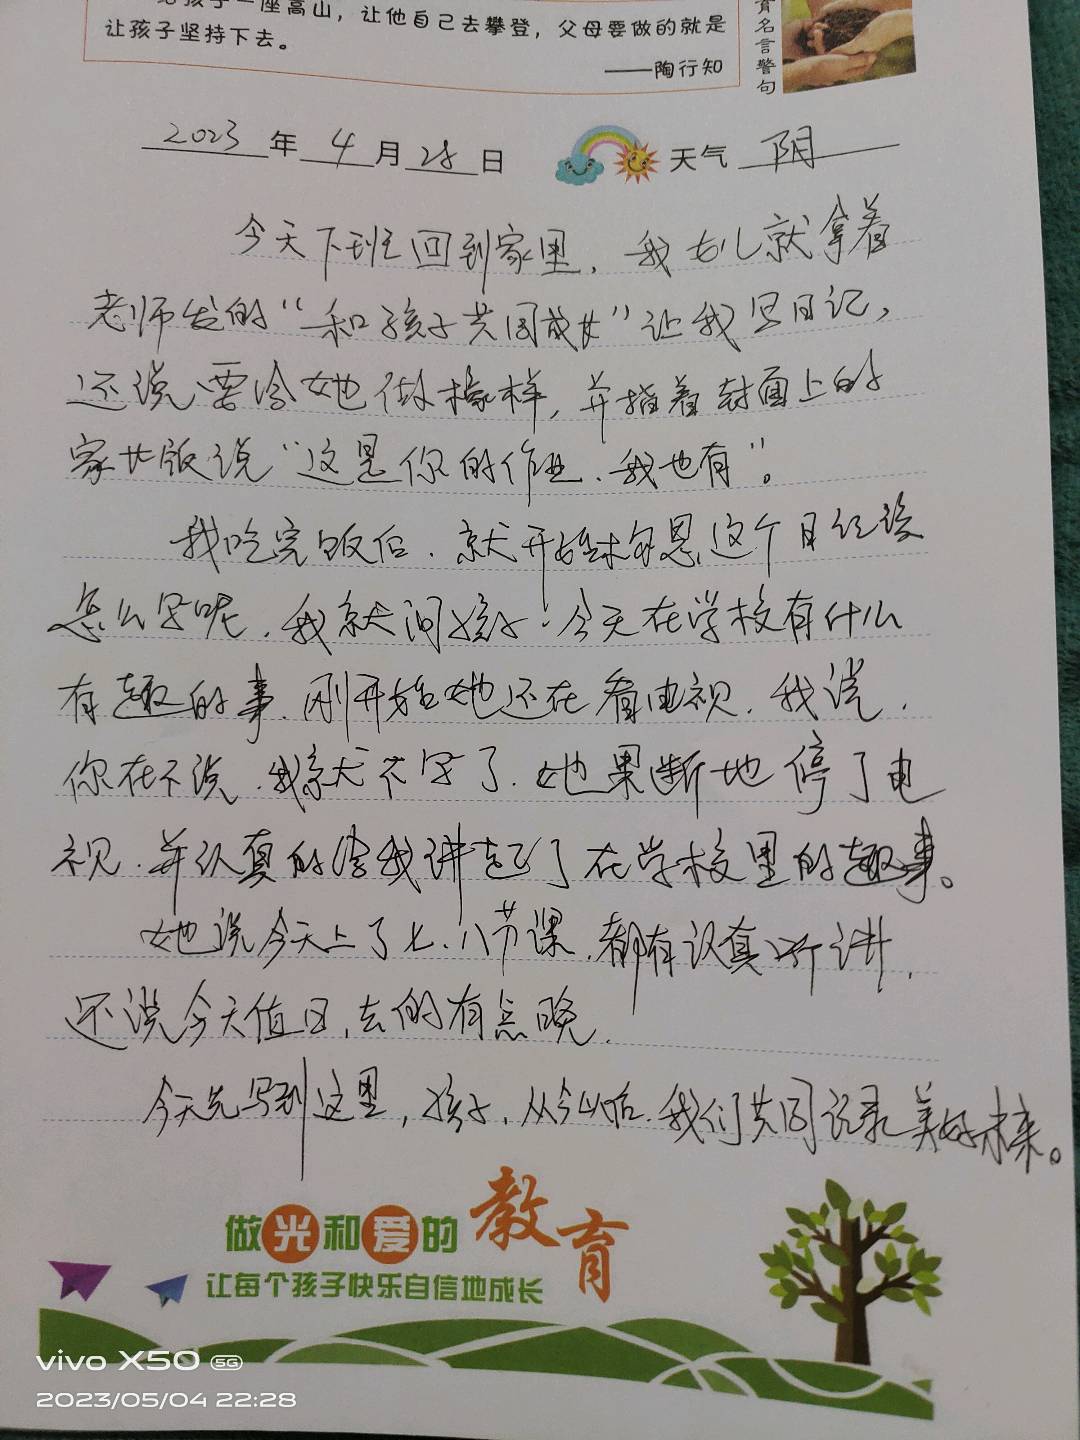 给孩子一座高山，让他自己去攀登，父母要做的就是
让孩子坚持下去。
——陶行知
育名言警句
2023年4月28日 天气 阴
今天下班回到家里，我女儿就拿着
老师发的“和孩子共同成长”让我写日记，
还说要给她做榜样，并指着封面上的
家长版说“这是你的作业、我也有”。
我吃完饭后．就开始构思这个日记该
怎么写呢．我就问孩子：今天在学校有什么
有趣的事．刚开始她还在看电视．我说．
你在不说．我就不写了．她果断地停了电
视．并认真的给我讲起了在学校里的趣事。
她说今天上了七、八节课．都有认真听讲，
还说今天值日．去的有点晚．
今天先写到这里，孩子．从今以后．我们共同记录美好未来。
做光和爱的教育
让每个孩子快乐自信地成长
vivo X50 5G
2023/05/04 22:28